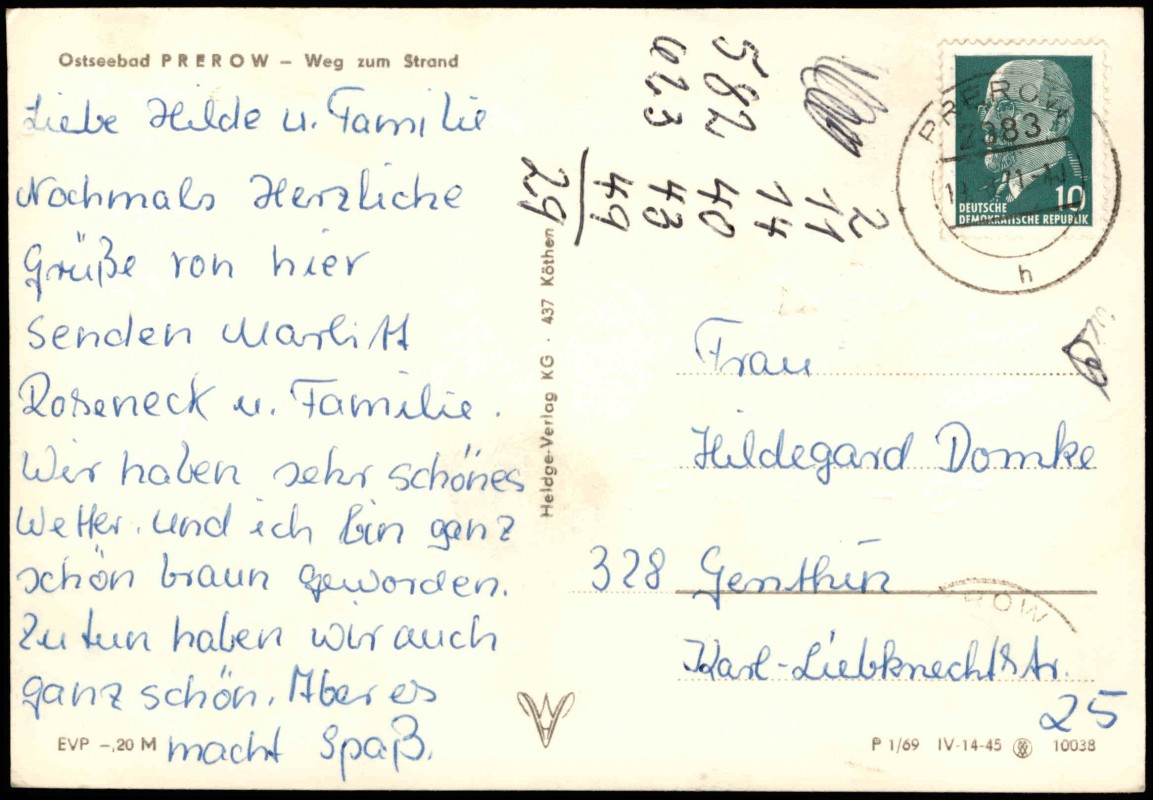 Ostseebad PREROW – Weg zum Strand
Liebe Hilde u. Familie
Nochmals Herzliche
Grüße von hier
senden Marlitt
Roseneck u. Familie.
Wir haben sehr schönes
Wetter. und ich bin ganz
schön braun geworden.
Zu tun haben wir auch
ganz schön. Aber es
macht Spaß.
EVP –,20 M
Heldge-Verlag KG · 437 Köthen
2
11
14
582 40
623 43
49
29
PREROW
2383
h
10
DEUTSCHE
DEMOKRATISCHE REPUBLIK
Frau
Hildegard Domke
328 Genthin
ROW
Karl-Liebknechtstr.
25
P 1/69 IV-14-45 10038